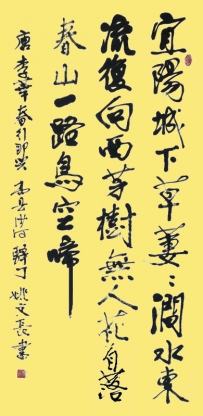 宜陽城下草萋々澗水東
流復向西芳樹無人花自落
春山一路鳥空啼
唐李華春行即兴 姚文長書